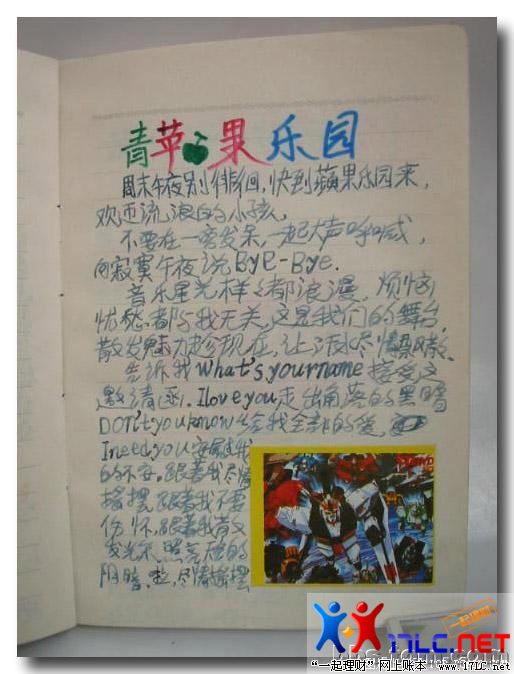 青苹果乐园
周末午夜别徘徊,快到蘋果乐园来,
欢迎流浪的小孩,
不要在一旁发呆,一起大声呼喊,
向寂寞午夜说Bye-Bye.
音乐星光样样都浪漫,烦恼
忧愁都与我无关,这是我们的舞台,
散发魅力趁现在,让汗水尽情飘散.
告诉我what's your name接受这
邀请函.I love you走出角落的黑暗
DON't you know给我全部的爱,
I need you安慰我
的不安.跟着我尽情
摇摆 跟着我不要
伤怀.跟着我散
发光 照亮你的
阴暗.啦,尽情摇摆
17LC.NET
一起理财
"一起理财"网上账本 www.17LC.net